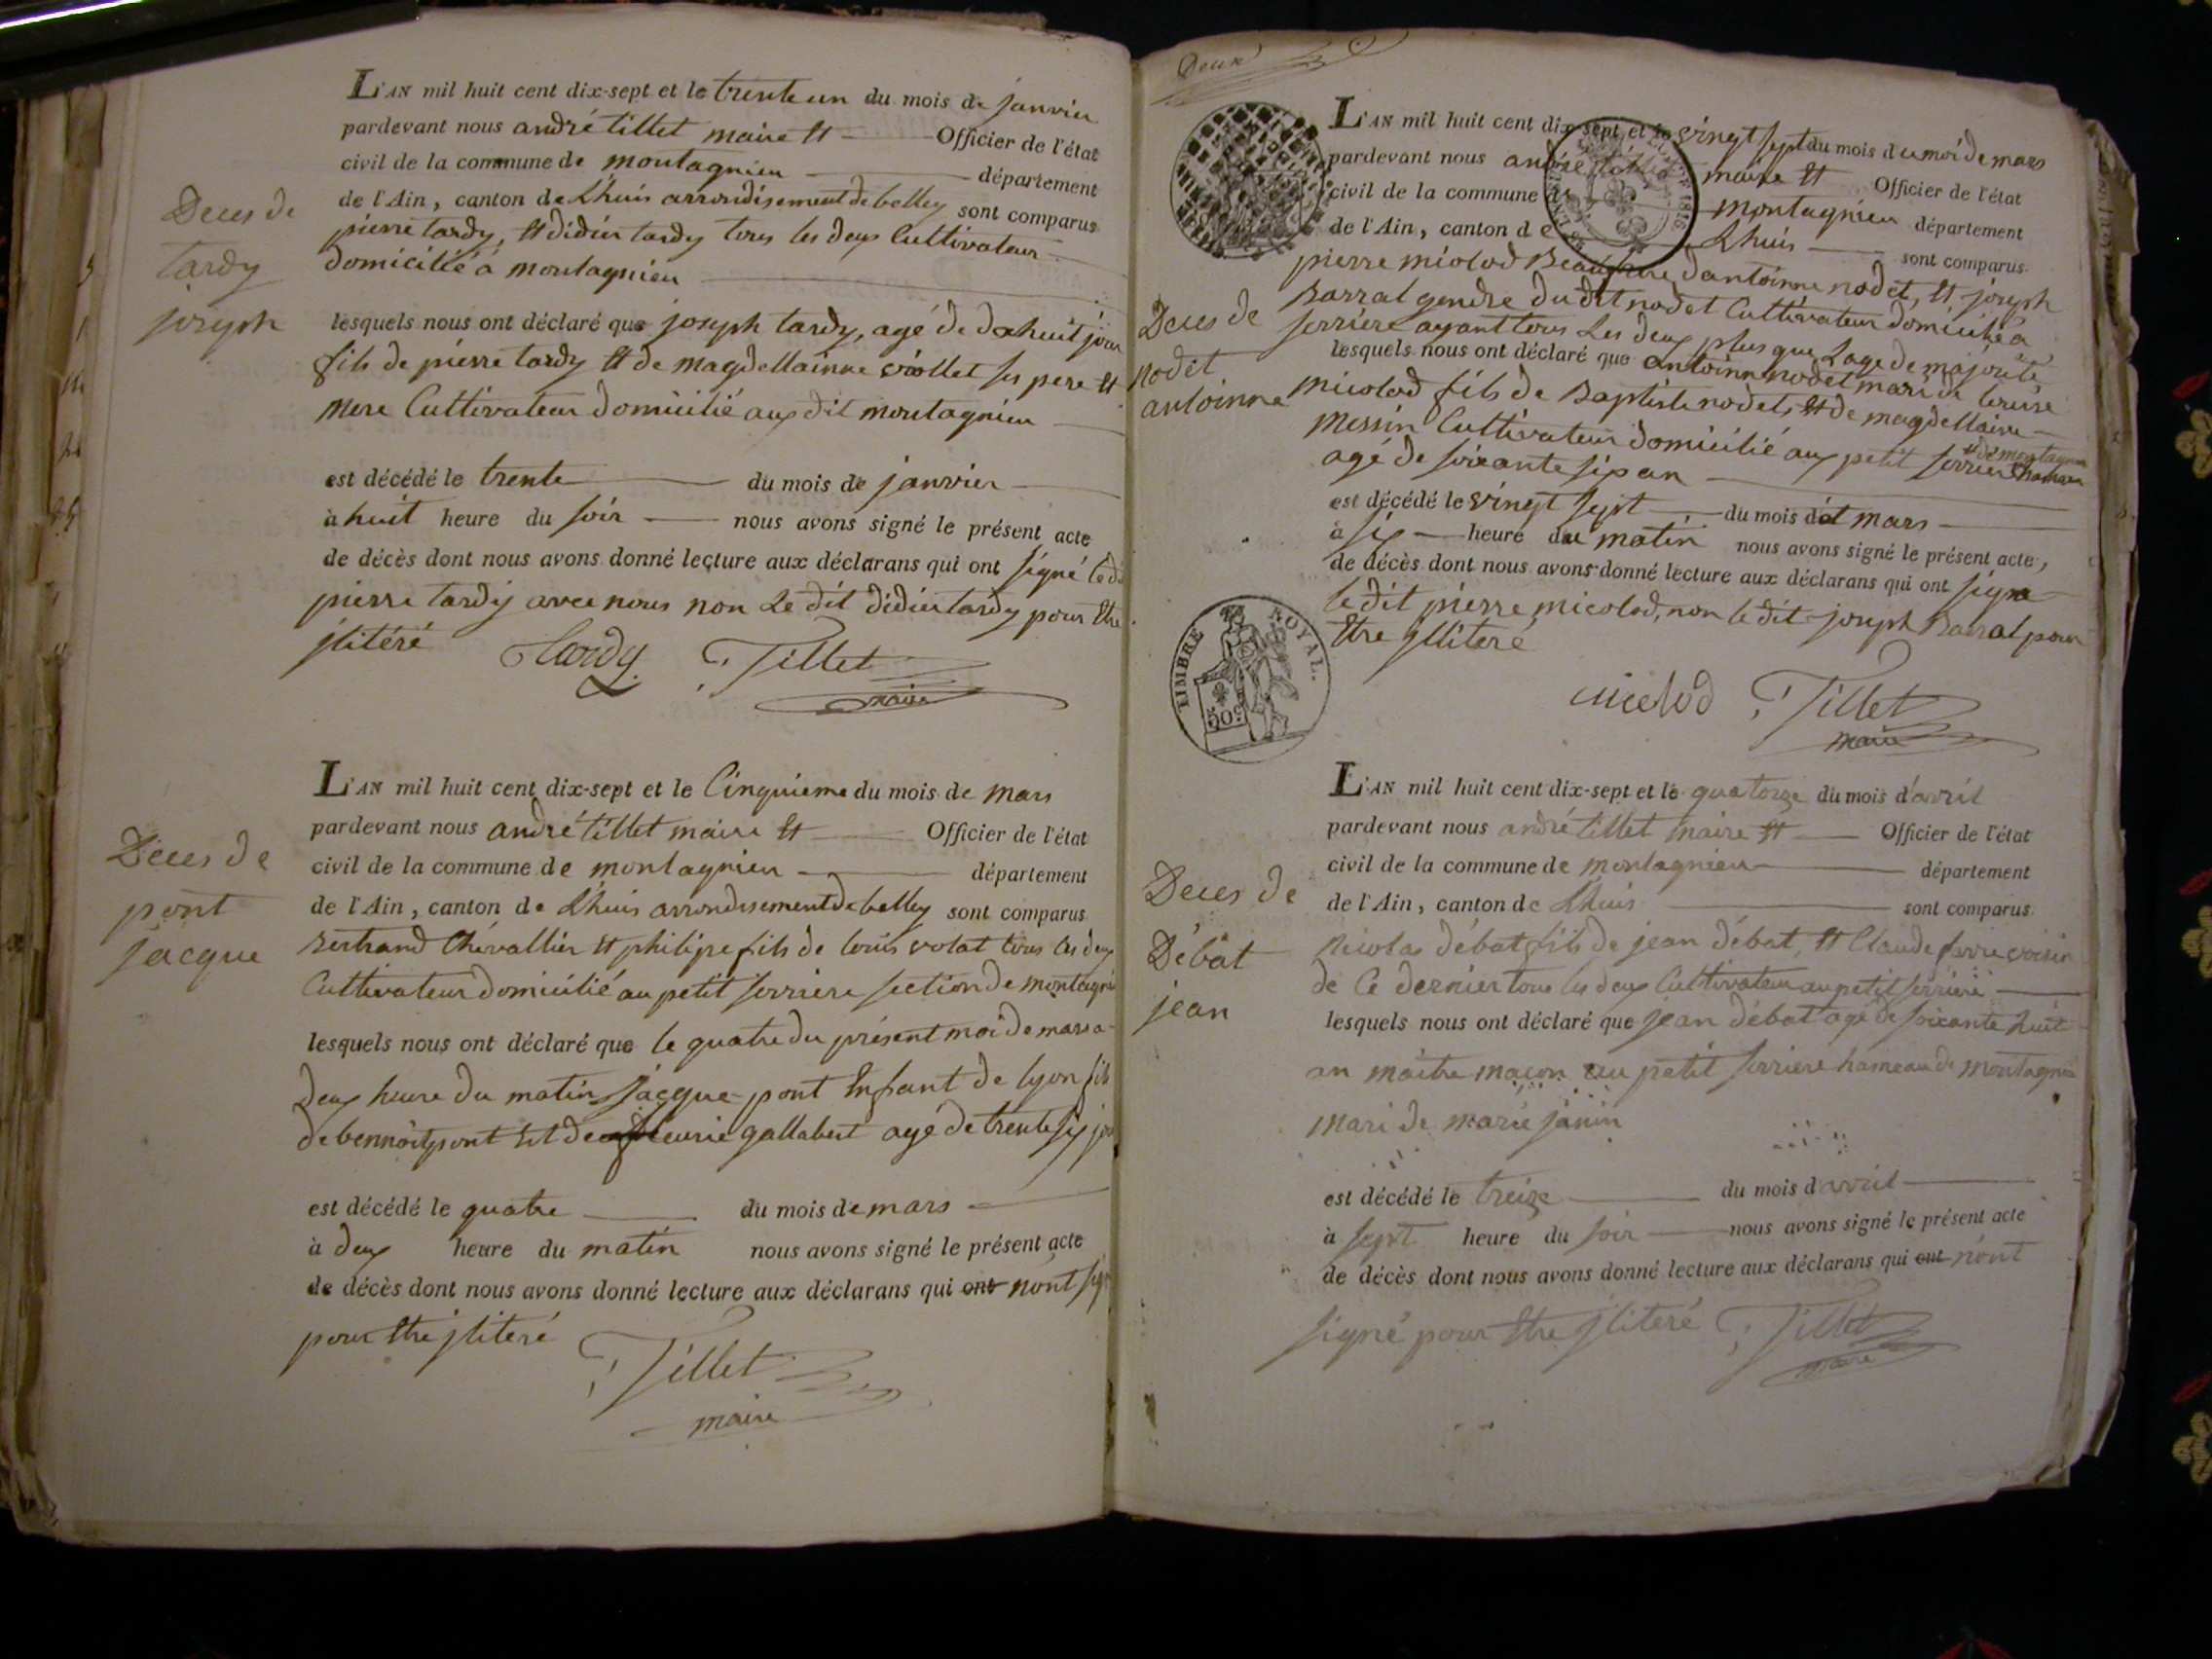 L'AN mil huit cent dix-sept et le trente un du mois de janvier
pardevant nous andré tillet maire et Officier de l'état
civil de la commune de montagnieu département
de l'Ain, canton de Lhuis arrondisement de belley sont comparus
pierre tardy, et didier tardy tous les deux Cultivateur
domicilié à montagnieu
Deces de
tardy
joseph
lesquels nous ont déclaré que joseph tardy, agé de dixhuit jour
fils de pierre tardy et de magdellainne viollet ses pere et
mere Cultivateur domicilié aux dit montagnieu
est décédé le trente du mois de janvier
à huit heure du soir nous avons signé le présent acte
de décès dont nous avons donné lecture aux déclarans qui ont signé ledi
pierre tardy avec nous non le dit didier tardy pour etre
jlitéré
tardy Tillet
maire
L'AN mil huit cent dix-sept et le Cinquieme du mois de mars
pardevant nous andré tillet maire et Officier de l'état
civil de la commune de montagnieu département
de l'Ain, canton de Lhuis arrondisement de belley sont comparus
Deces de
pont
jacque
Bertrand Chevallier et philipe fils de louis volat tous les deux
Cultivateur domicilié au petit serriere section de montagni
lesquels nous ont déclaré que le quatre du présent moi de mars a
deux heure du matin jacque pont Enfant de lyon fils
de bennoit pont et de fleurie gallabert agé de trente six jou
est décédé le quatre du mois de mars
à deux heure du matin nous avons signé le présent acte
de décès dont nous avons donné lecture aux déclarans qui ont n'ont sign
pour etre jliteré
Tillet
maire
Deux
L'AN mil huit cent dix-sept et le vingt sept du mois du moi de mars
pardevant nous andré tillet maire et Officier de l'état
civil de la commune de montagnieu département
de l'Ain, canton de Lhuis sont comparus
1816
pierre miolod Beaufrere d'antoinne nodet, et joseph
Barral gendre du dit nodet Cultivateur domicilié a
serriere ayant tous les deux plus que l'age de majorité
Deces de
nodet
antoinne
lesquels nous ont déclaré que antoinne nodet mari de
micolod fils de Baptiste nodet, et de magdellaine
messin Cultivateur domicilié aux petit serriere hameau
de montagnieu
agé de soixante six an
est décédé le vingt sept du mois de mars
à six heure du matin nous avons signé le présent acte,
de décès dont nous avons donné lecture aux déclarans qui ont signe
le dit pierre micolod, non le dit joseph Barral pour
etre jlliteré
TIMBRE ROYAL.
50c
micolod Tillet
maire
L'AN mil huit cent dix-sept et le quatorze du mois d'avril
pardevant nous andré tillet maire et Officier de l'état
civil de la commune de montagnieu département
de l'Ain, canton de Lhuis sont comparus
Deces de
Débat
jean
Nicolas débat fils de jean débat, et Claude ferrie voisin
de Ce dernier tous les deux Cultivateur au petit serriere
lesquels nous ont déclaré que jean débat agé de soixante huit
an maitre maçon au petit serriere hameau de montagnie
mari de marie janin
est décédé le treize du mois d'avril
à sept heure du soir nous avons signé le présent acte
de décès dont nous avons donné lecture aux déclarans qui ont n'ont
signé pour etre jliteré Tillet
maire